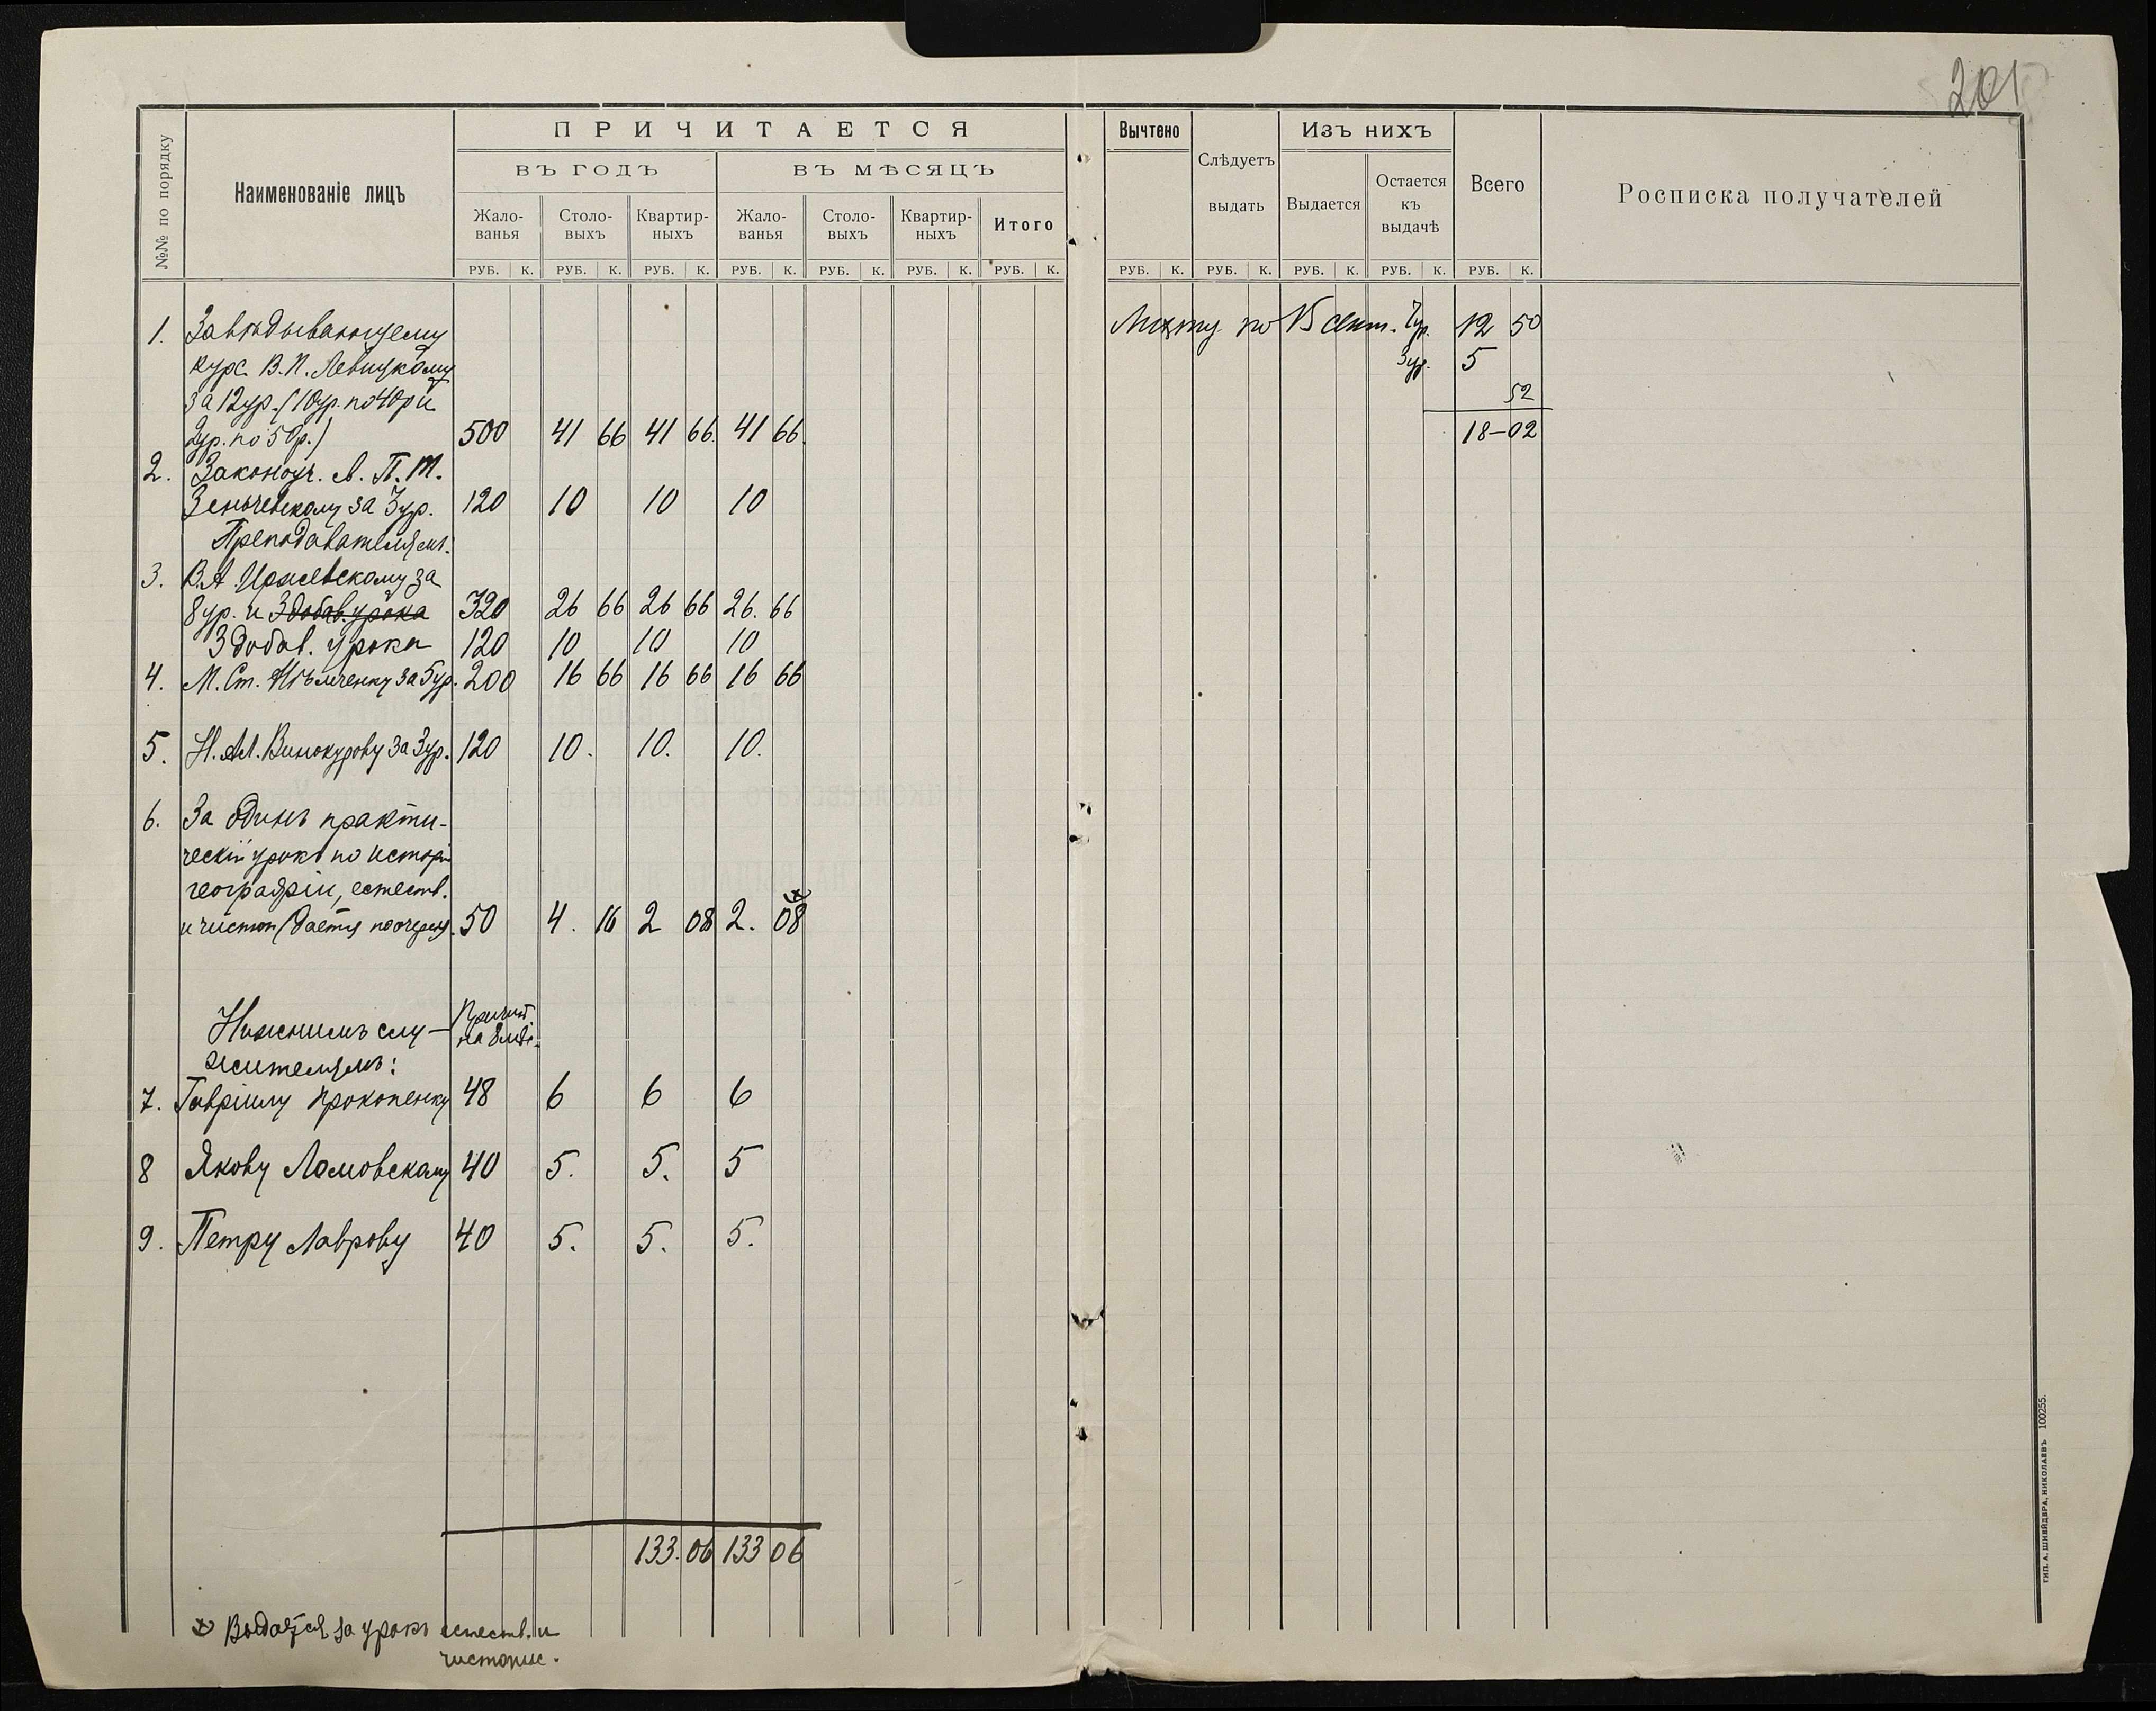 201
ПРИЧИТАЕТСЯ
ВЪ ГОДЪ
ВЪ МѢСЯЦЪ
№№ по порядку
Наименованіе лицъ
Жало-
ванья
Столо-
выхъ
Квартир-
ныхъ
Жало-
ванья
Столо-
выхъ
Квартир-
ныхъ
Итого
РУБ. К. РУБ. К. РУБ. К. РУБ. К. РУБ. К. РУБ. К. РУБ. К.
Вычтено
Слѣдуетъ
выдать
Изъ нихъ
Выдается
Остается
къ
выдачѣ
Всего
Росписка получателей
РУБ. К. РУБ. К. РУБ. К. РУБ. К. РУБ. К.
1. Завѣдывающему
курс. В. П. Левицкому
за 12 ур. (10 ур. по 40 р и
2 ур. по 50 р.) 500 41 66 41 66. 41 66.
2. Законоуч. с. П. М.
Зеньчевскому за 3 ур. 120 10 10 10
Преподавателямъ.
3. В. А. Иржевскому за
8 ур. и 3 добав. урока 320 26 66 26 66 26. 66
3 добав. урока 120 10 10 10
4. М. Ст. Нѣмченку за 5 ур. 200 16 66 16 66 16 66
5. Н. Ал. Винокурову за 3 ур. 120 10. 10. 10.
6. За одинъ практи-
ческій урокъ по исторіи
географіи, естеств.
и чистоп (дается по очереди. 50 4. 16 2 08 2. 08
Нижнимъ слу-
жителямъ:
Причит.
на 8 мѣс.
7. Гавріилу Прокопенку 48 6 6 6
8 Якову Ломовскому 40 5. 5. 5
9. Петру Лаврову 40 5. 5. 5.
133. 06 133 06
Выдается за урокъ естеств. и
чистопис.
по 15 сент. 12 50
3 ур. 5
52
18-02
ТИП. А. ШНЕЙДЕРА, НИКОЛАЕВЪ 100255.